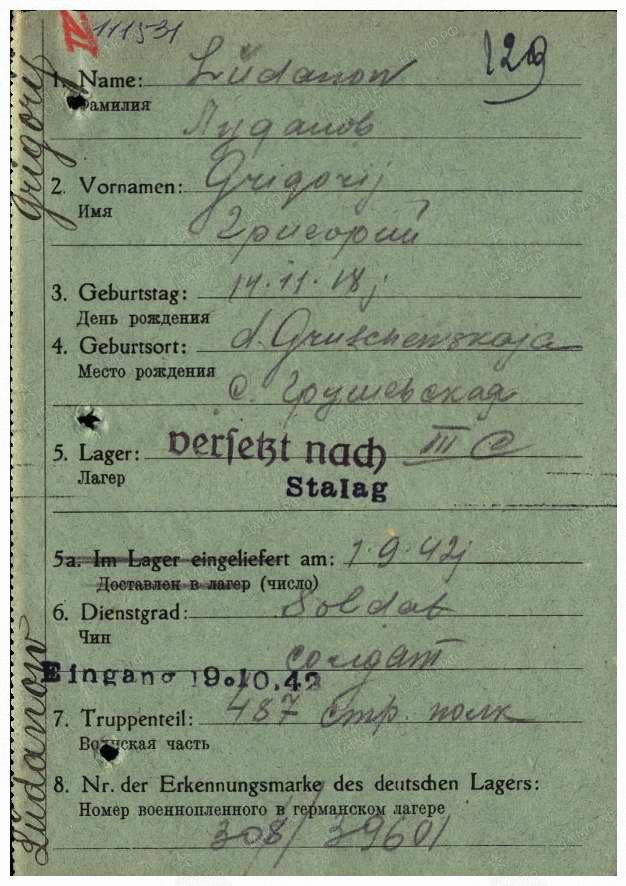 IV 111531
129
1. Name: Lüdanow
Фамилия
Луданов
2. Vornamen: Grigorij
Имя
Григорий
3. Geburtstag: 14.11.18 j
День рождения
4. Geburtsort: d. Gruschewskaja
Место рождения с. Грушевская
5. Lager: versetzt nach III C
Лагер Stalag
5a. Im Lager eingeliefert am: 1.9.42 j
Доставлен в лагер (число)
6. Dienstgrad: Soldat
Чин
солдат
Eingang 19.10.42
7. Truppenteil: 487 стр. полк
Воинская часть
8. Nr. der Erkennungsmarke des deutschen Lagers:
Номер военнопленного в германском лагере
308/39601
Lüdanow Grigory